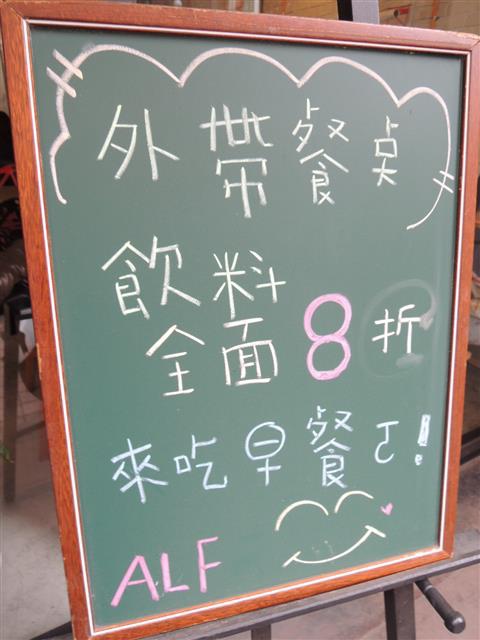 外帶餐奌
飲料
全面8折
來吃早餐ㄛ!
ALF